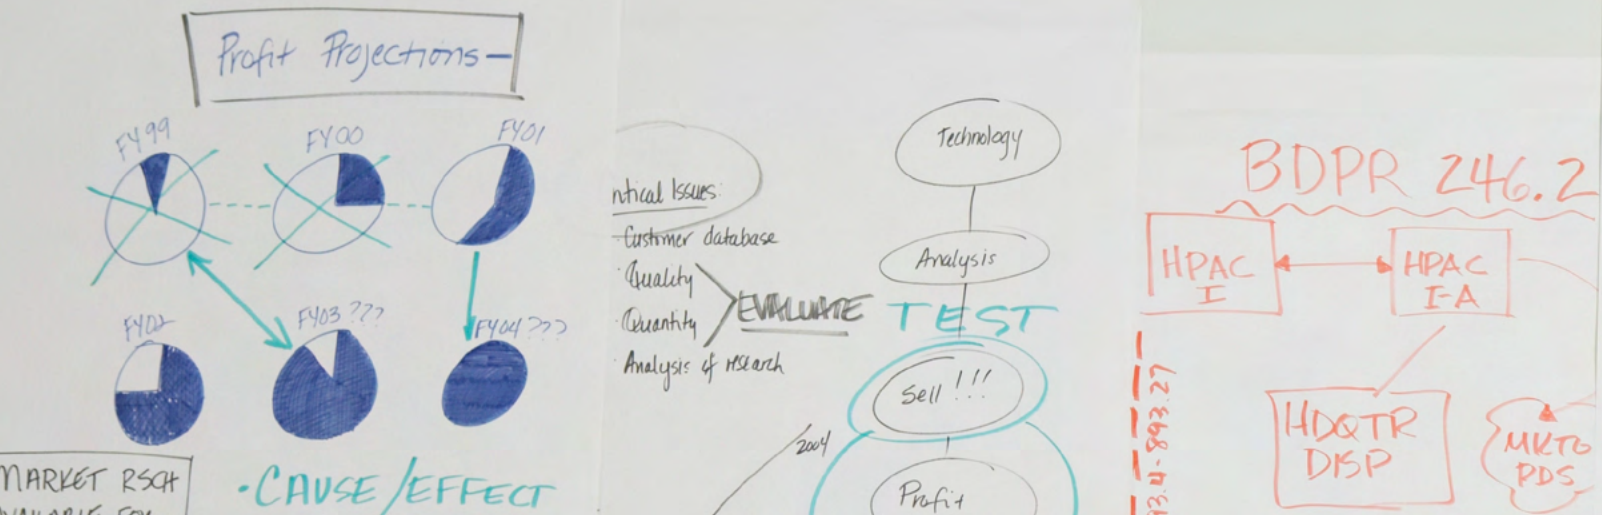 Profit Projections—
FY99
FY00
FY01
FY02
FY03 ???
FY04 ???
MARKET RSCH
AVAILABLE FOR
·CAUSE/EFFECT
ntical Issues:
·Customer database
·Quality
·Quantity
·Analysis of research
EVALUATE
Technology
Analysis
TEST
Sell !!!
2004
Profit
BDPR 246.2
HPAC
I
HPAC
I-A
93.4-893.27
HDQTR
DISP
MKTG
PDS